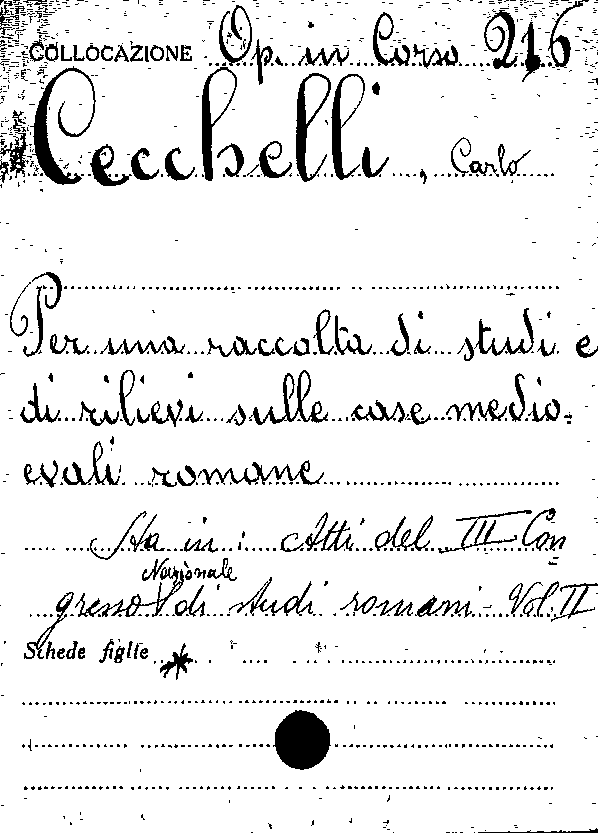 COLLOCAZIONE Op. in Corso 216
Cecchelli, Carlo
Per una raccolta di studi e
di rilievi sulle case medio-
evali romane
Sta in: Atti del III Con
Nazionale
gresso di studi romani - Vol. II
Schede figlie *